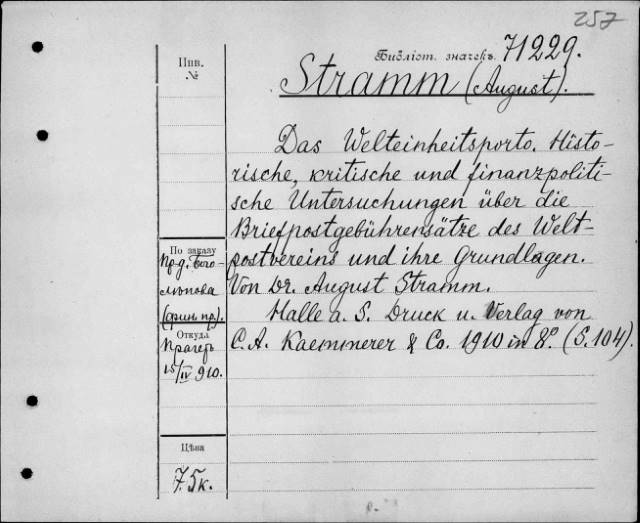 257
Инв. №
Библіот. значекъ 71229.
Stramm (August).
Das Welteinheitsporto. Histo-
rische, kritische und finanzpoliti-
sche Untersuchungen über die
Briefpostgebührensätze des Welt-
postvereins und ihre Grundlagen.
Von Dr. August Stramm.
Halle a. S. Druck u. Verlag von
C. A. Kaemmerer & Co. 1910 in 8º. (S. 104).
По заказу
Пр-д. Бого-
лѣпова
(фин. пр).
Откуда
Прагеръ
15/IV 910.
Цѣна
7.5к.